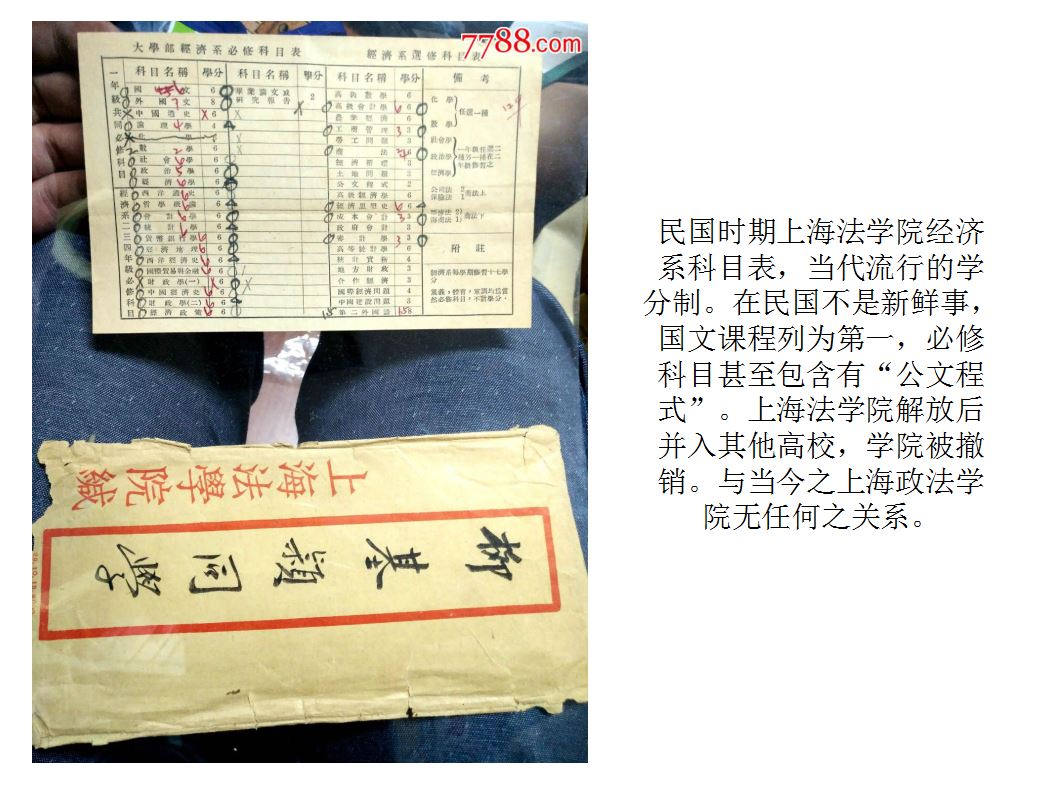 7788.com
大學部經濟系必修科目表
經濟系選修科目表
科目名稱 學分 科目名稱 學分 科目名稱 學分 備考
一年級共同必修科目
國文 6
外國文 8
中國通史 6
論理學 4
數學 6
社會學 6
政治學 6
經濟學 6
經濟系二三四年級必修科目
西洋通史 6
哲學概論
會計學 6
統計學 6
貨幣銀行學 6
經濟地理 6
西洋經濟史
國際貿易與金融
財政學(一)
中國經濟史
財政學(二)
經濟政策
畢業論文或
研究報告 2
高級數學 6
高級會計學 6
農業經濟 6
工商管理 3
勞工問題 3
商法
經濟循環 3
土地問題 3
公文程式 2
高級經濟學 6
經濟思想史 6
成本會計 3
政府會計 3
審計學 3
高等統計學 6
統計實務 4
地方財政 3
合作經濟 3
國際經濟問題 4
中國建設問題 3
第二外國語
化學
數學
任選一種
社會學
政治學
經濟學
一年級任選二
種另一種在二
年級修習之
公司法 2
保險法 1
商法上
票據法 2
海商法 1
商法下
附註
經濟系每學期修習十七學
分
黨義,體育,軍訓均爲當
然必修科目,不計學分。
上海法學院緘
柳基穎同學
民国时期上海法学院经济
系科目表，当代流行的学
分制。在民国不是新鲜事，
国文课程列为第一，必修
科目甚至包含有“公文程
式”。上海法学院解放后
并入其他高校，学院被撤
销。与当今之上海政法学
院无任何之关系。